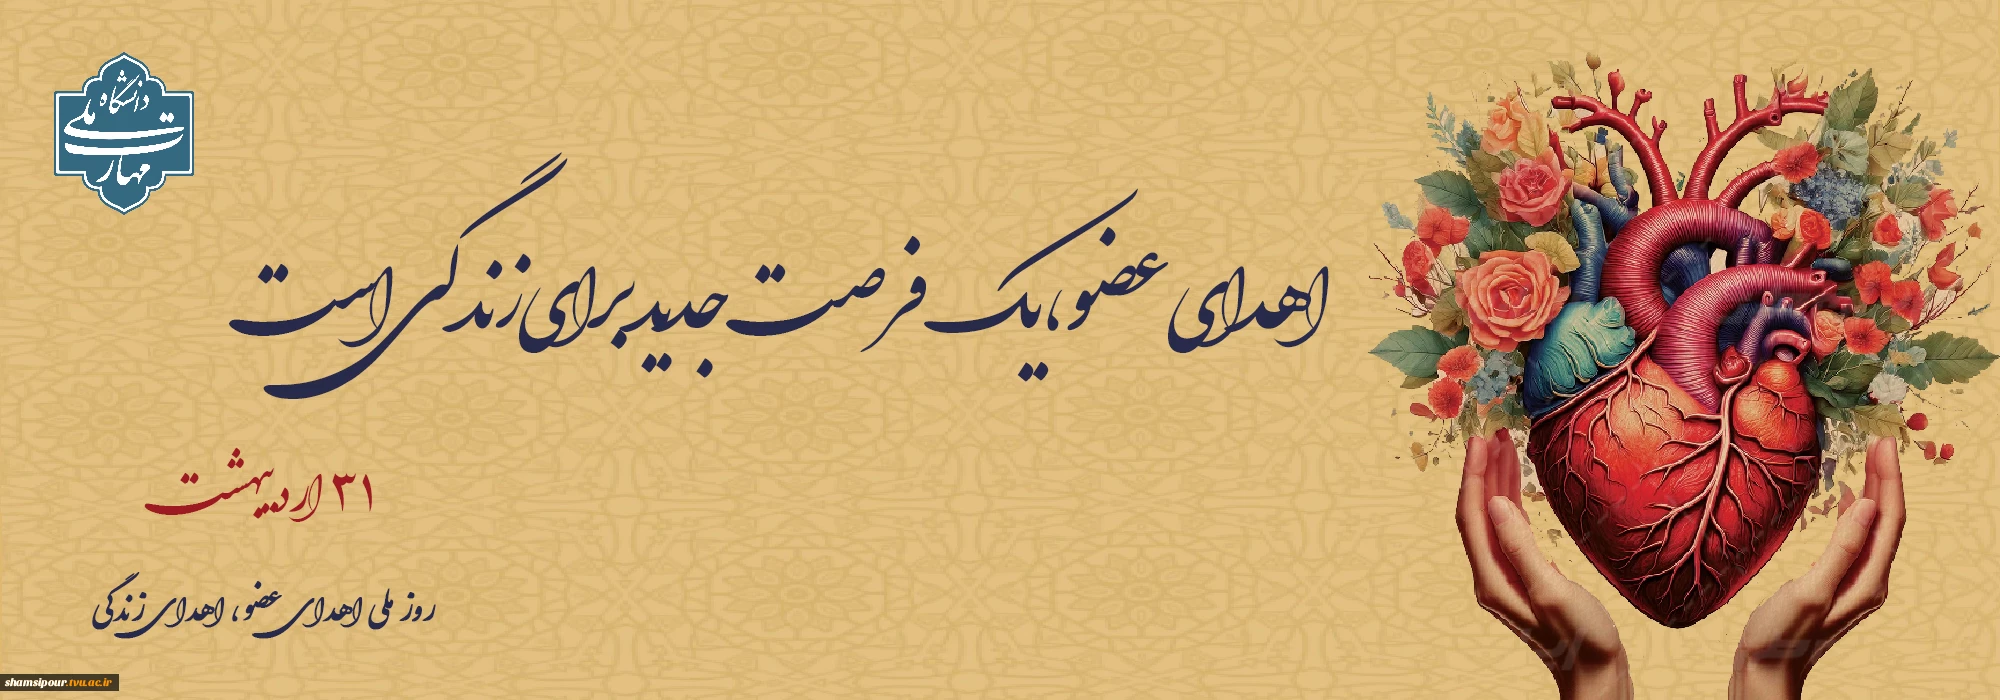 دانشگاه ملی مهارت
اهدای عضو، یک فرصت جدید برای زندگی است
۳۱ اردیبهشت
روز ملی اهدای عضو، اهدای زندگی
shamsipour.tvu.ac.ir